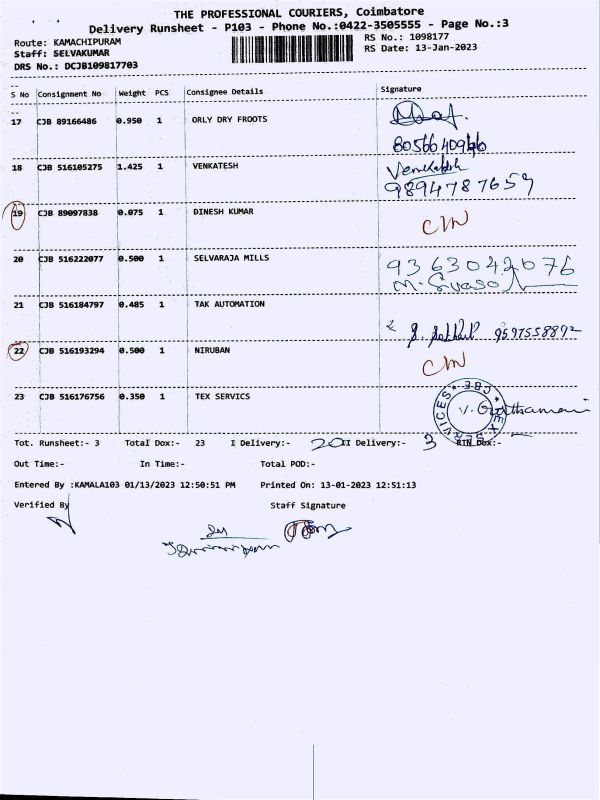 THE PROFESSIONAL COURIERS, Coimbatore
Delivery Runsheet - P103 - Phone No.:0422-3505555 - Page No.:3
Route: KAMACHIPURAM
RS No.: 1098177
Staff: SELVAKUMAR
RS Date: 13-Jan-2023
DRS No.: DCJB109817703
S No Consignment No Weight PCS Consignee Details Signature
17 CJB 89166486 0.950 1 ORLY DRY FROOTS
18 CJB 516105275 1.425 1 VENKATESH Venkatesh
9894787659
19 CJB 89097838 0.075 1 DINESH KUMAR
20 CJB 516222077 0.500 1 SELVARAJA MILLS 9363042076
21 CJB 516184797 0.485 1 TAK AUTOMATION
9597558892
22 CJB 516193294 0.500 1 NIRUBAN
23 CJB 516176756 0.350 1 TEX SERVICS
TEX SERVICES * CBE *
Tot. Runsheet:- 3 Total Dox:- 23 I Delivery:- 20 II Delivery:- 3 RTN Dox:-
Out Time:- In Time:- Total POD:-
Entered By :KAMALA103 01/13/2023 12:50:51 PM Printed On: 13-01-2023 12:51:13
Verified By Staff Signature